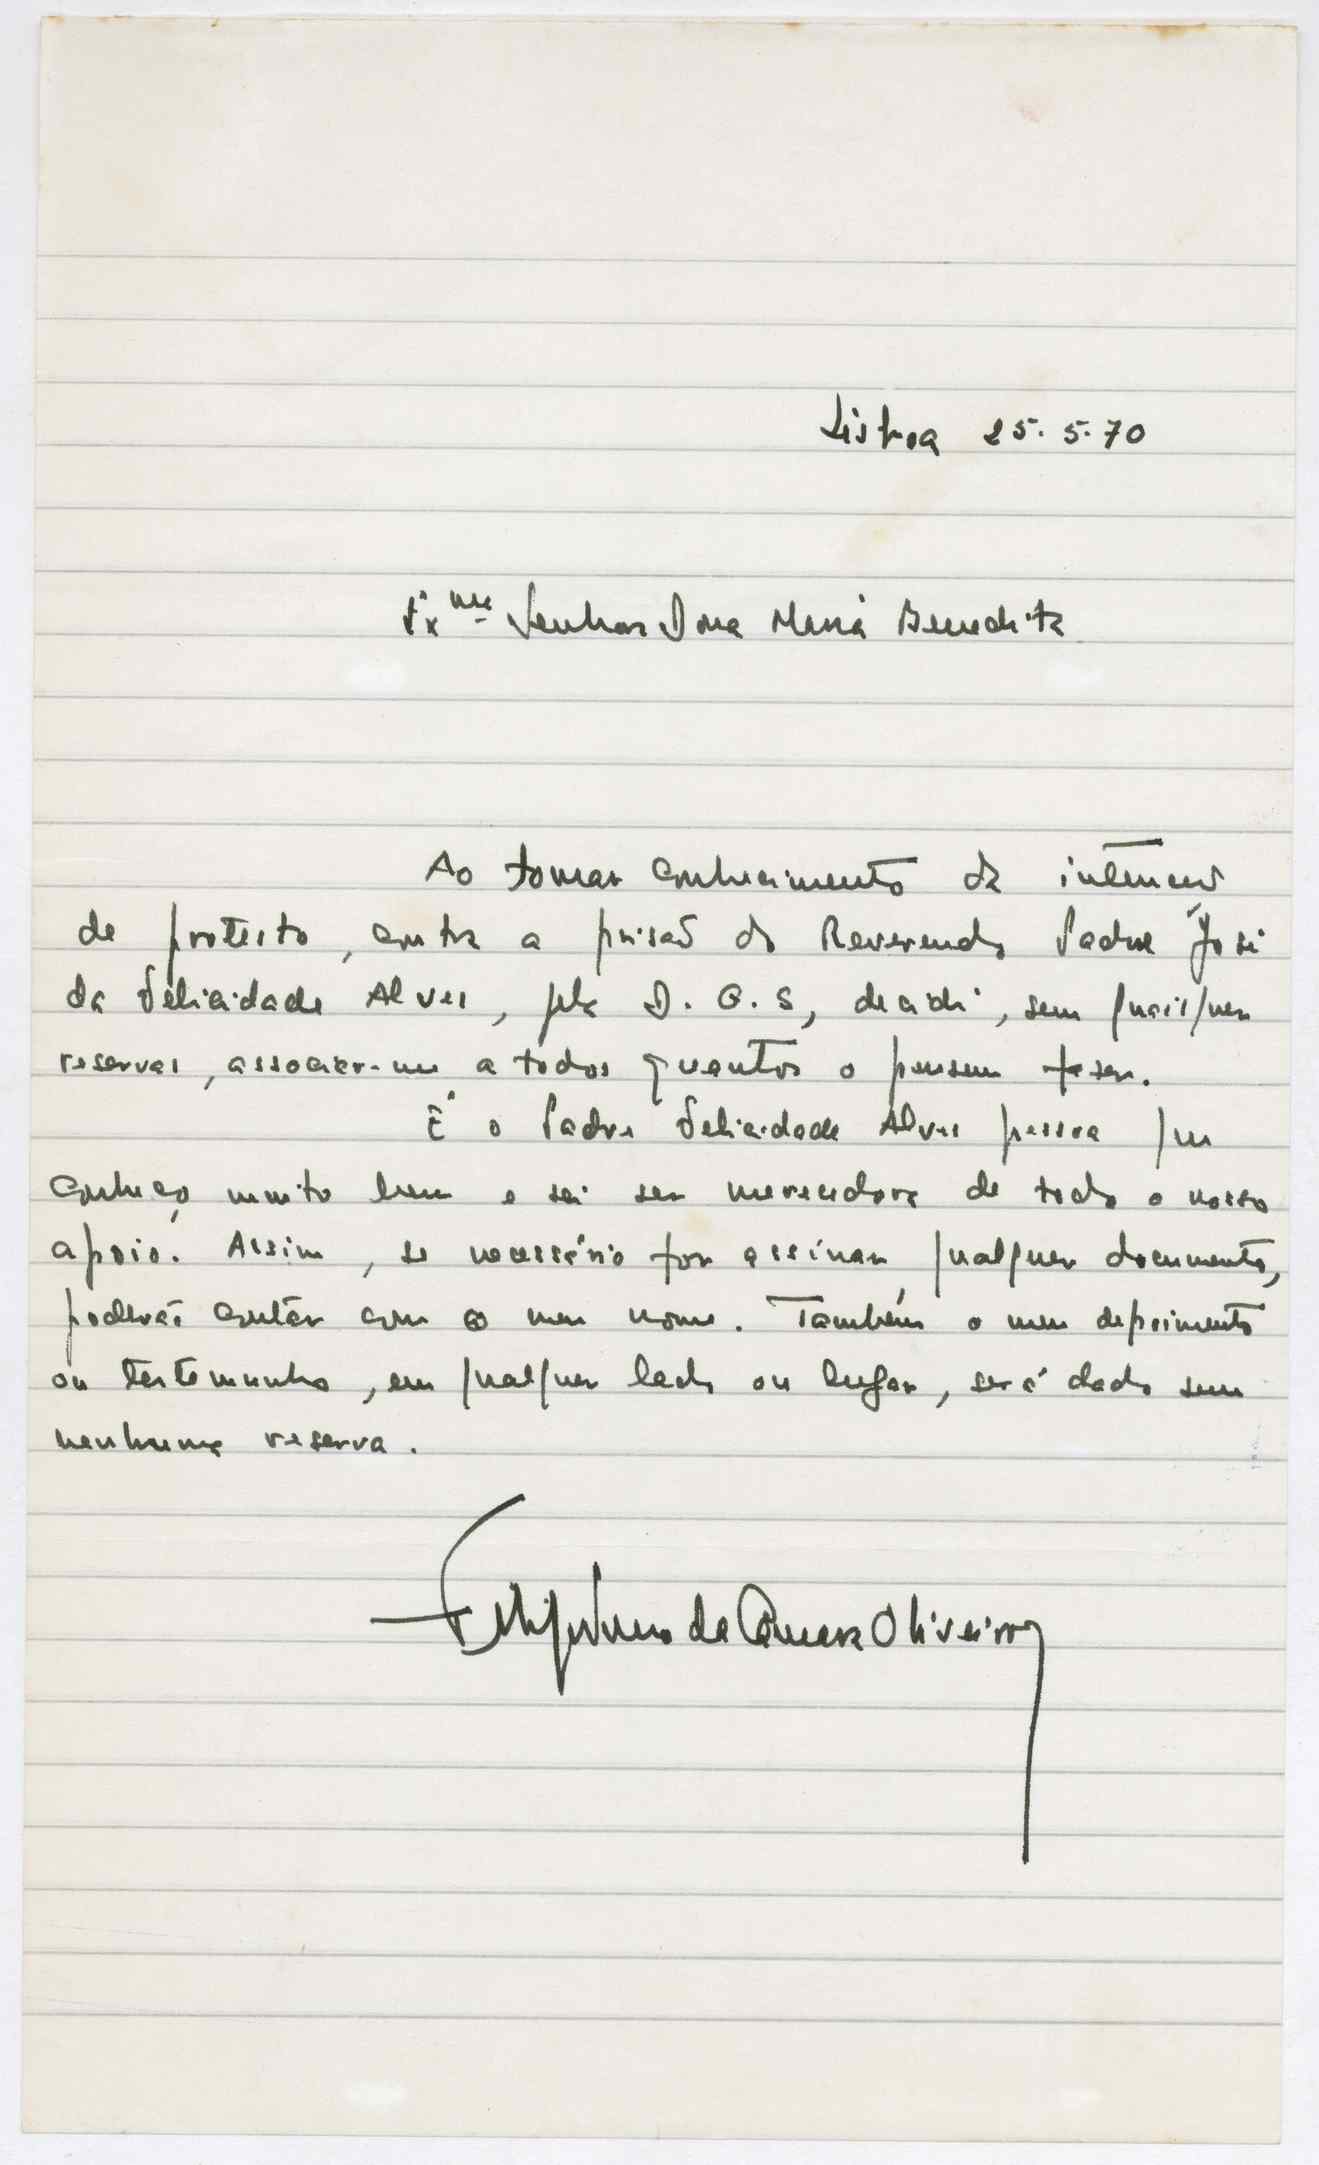 Lisboa 25.5.70
Exma Senhora Dona Maria Benedita
Ao tomar conhecimento da intenção
de protesto, contra a prisão do Reverendo Padre José
da Felicidade Alves, pela D.G.S, decidi, sem quaisquer
reservas, associar-me a todos quantos o pensem fazer.
É o Padre Felicidade Alves pessoa que
conheço muito bem e sei ser merecedora de todo o nosso
apoio. Assim, se necessário for assinar qualquer documento,
poderão contar com o meu nome. Também o meu depoimento
ou testemunho, em qualquer lado ou lugar, será dado sem
nenhuma reserva.
de Câmara Oliveira